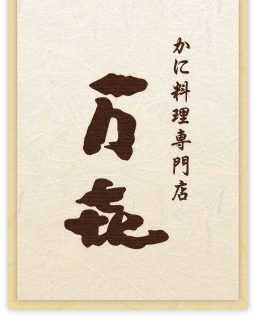 かに料理専門店
万㐂